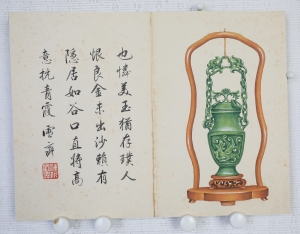 也憐美玉猶存璞人
恨良金未出沙賴有
隱居如谷口直將高
意抗青霞